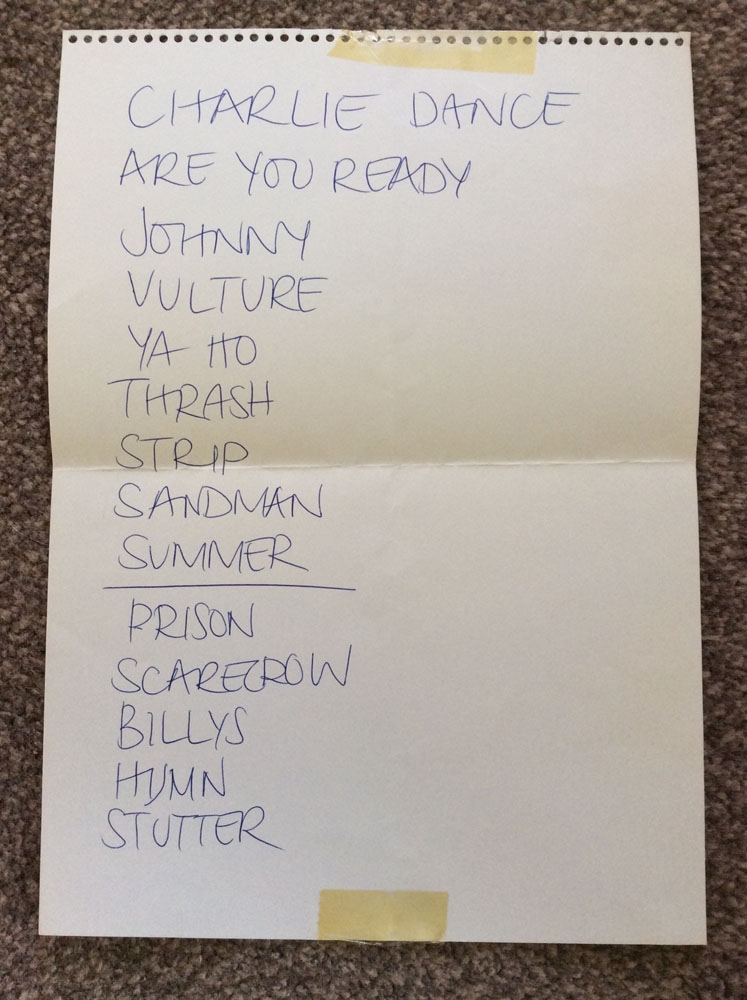 CHARLIE DANCE
ARE YOU READY
JOHNNY
VULTURE
YA HO
THRASH
STRIP
SANDMAN
SUMMER
PRISON
SCARECROW
BILLYS
HYMN
STUTTER